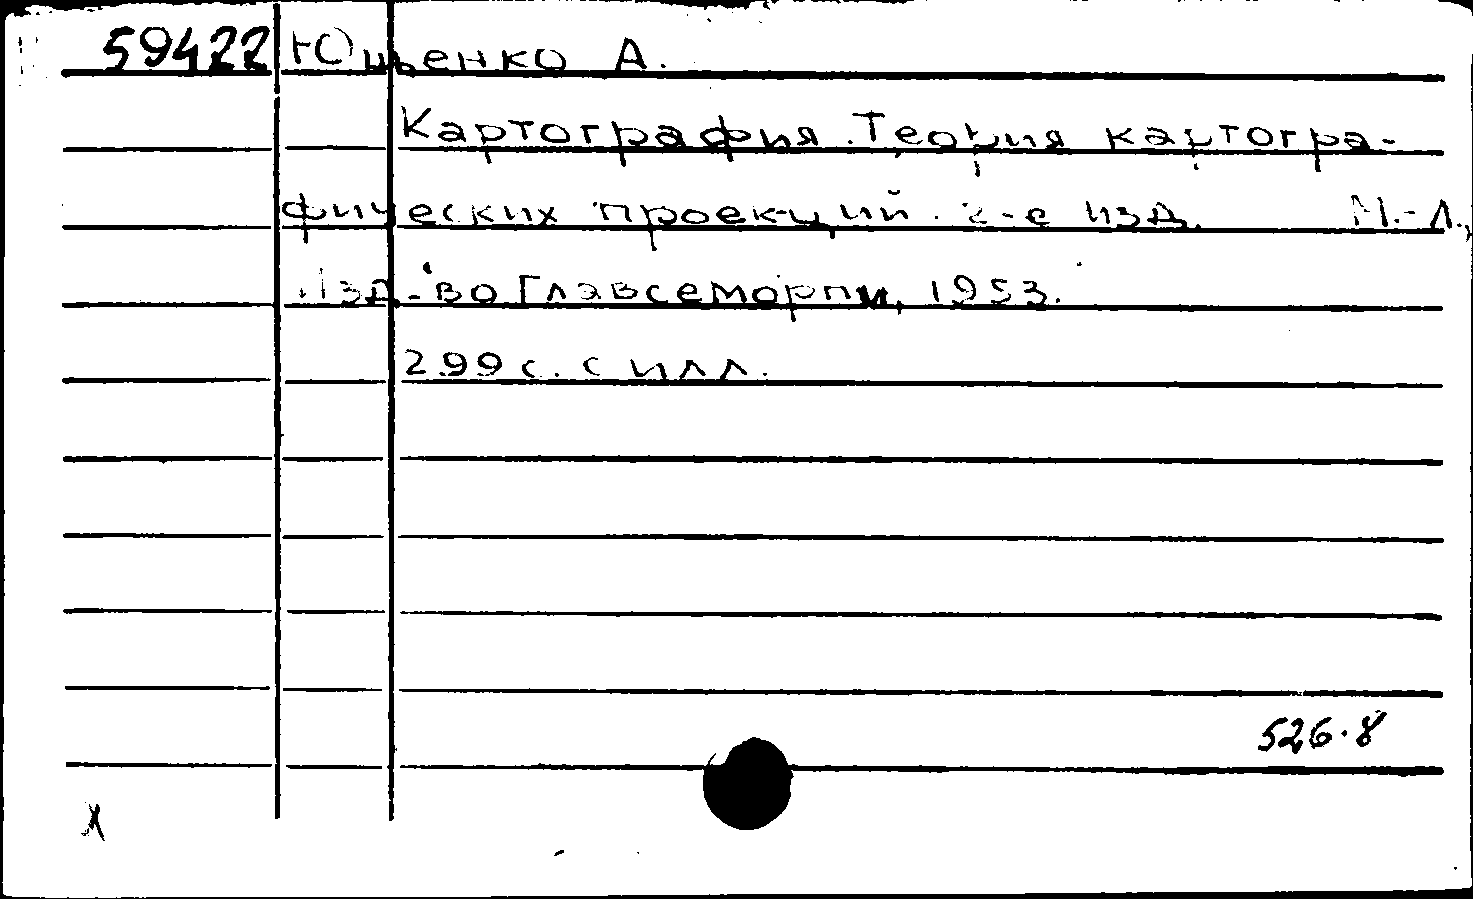 59422 Ющенко А.
Картография. Теория картогра-
фических проекций. 2-е изд. М.-Л.,
Изд-во Главсеморпи, 1953.
299 с. с илл.
526.8